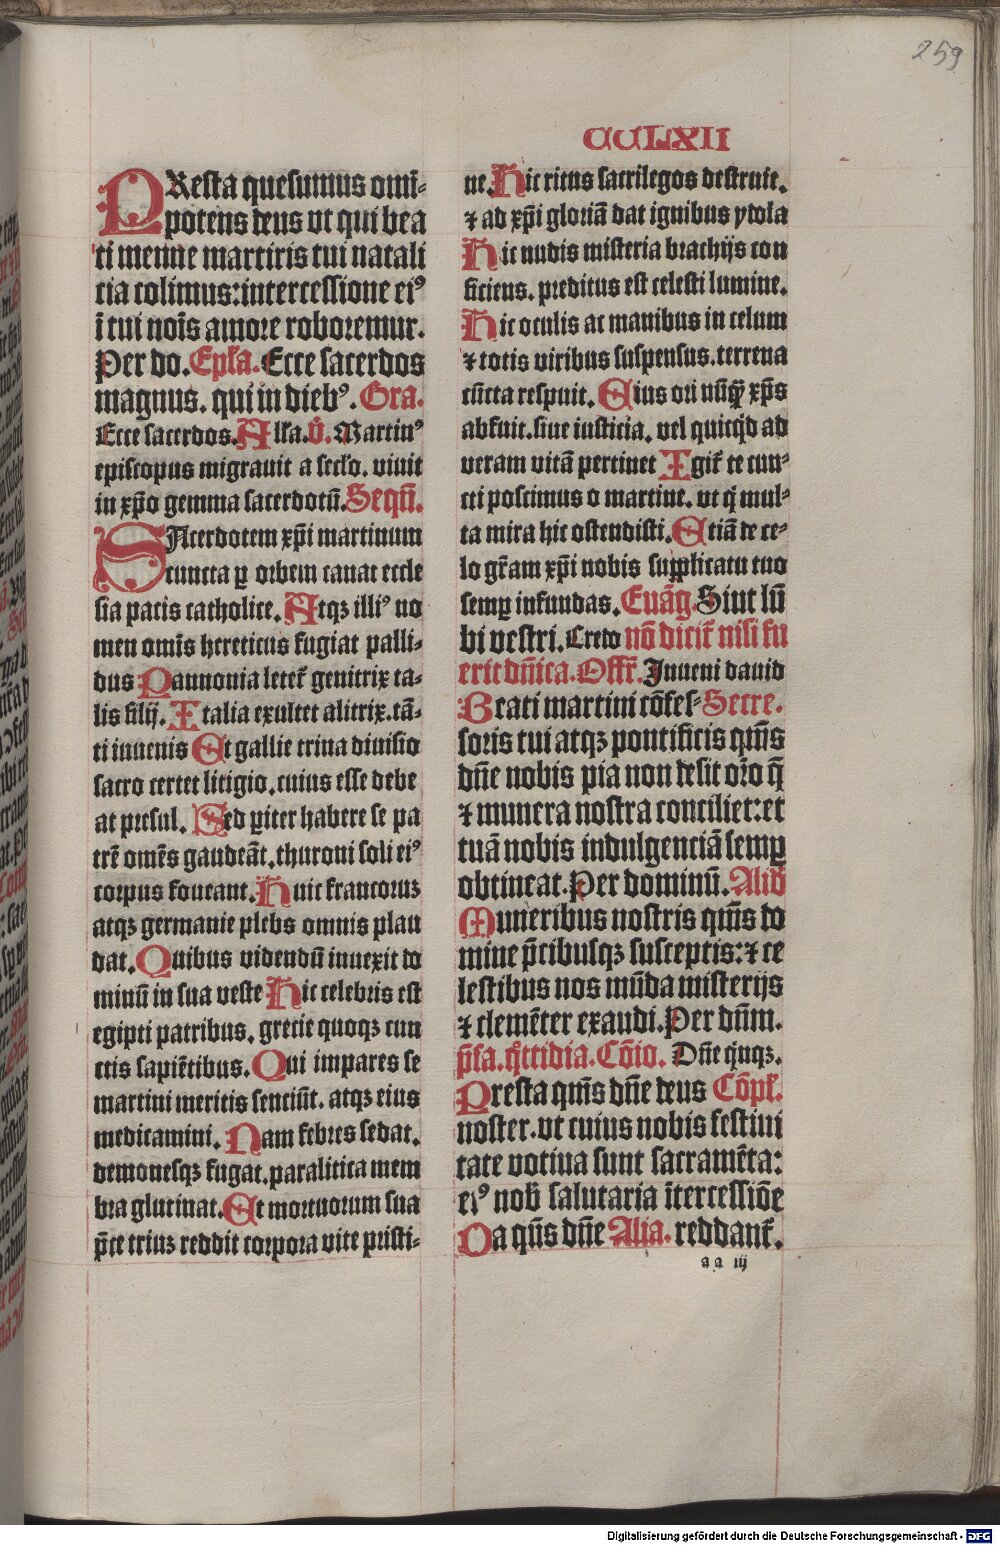 259
CCLXII
PResta quesumus omī-
potens deus vt qui bea
ti menne martiris tui natali
cia colimus: intercessione eiꝰ
ī tui noīs amore roboremur.
Per do. Epl̄a. Ecce sacerdos
magnus. qui in diebꝰ. Gra.
Ecce sacerdos. All'a. V̄. Martinꝰ
episcopus migrauit a secl'o. viuit
in xp̄o gemma sacerdotū. Seqū.
SAcerdotem xp̄i martinum
cuncta ꝑ orbem canat eccle
sia pacis catholice. Atqꝫ illiꝰ no
men om̄is hereticus fugiat palli-
dus Pannonia letet᷑ genitrix ta-
lis filij. Italia exultet alitrix. tā-
ti iuuenis Et gallie trina diuisio
sacro certet litigio. cuius esse debe
at presul. Sed ꝑiter habere se pa
trē omēs gaudeāt. thuroni soli eiꝰ
corpus foueant. Huic francoruꝫ
atqꝫ germanie plebs omnis plau
dat. Quibus videndū inuexit do
minū in sua veste Hic celebris est
egipti patribus. grecie quoqꝫ cun
ctis sapiētibus. Qui impares se
martini meritis senciūt. atqꝫ eius
medicamini. Nam febres sedat.
demonesqꝫ fugat. paralitica mem
bra glutinat. Et mortuorum sua
p̄ce triuꝫ reddit corpora vite pristi-
ne. Hic ritus sacrilegos destruit.
⁊ ad xp̄i gloriā dat ignibus ydola
Hic nudis misteria brachijs con
ficiens. preditus est celesti lumine.
Hic oculis ac manibus in celum
⁊ totis viribus suspensus. terrena
cūcta respuit. Eius ori nūqꝫ xp̄s
abfuit. siue iusticia. vel quicq̇d ad
veram vitā pertinet Igit᷑ te cun-
cti poscimus o martine. vt q̇ mul-
ta mira hic ostendisti. Etiā de ce-
lo gr̄am xp̄i nobis supplicatu tuo
semꝑ infundas. Euāg. Sint lū
bi vestri. Credo nō dicit᷑ nisi fu
erit dn̄ica. Off᷑. Inueni dauid
Beati martini cōfes- Secre.
soris tui atqꝫ pontificis qm̄s
dn̄e nobis pia non desit orō q̄
⁊ munera nostra conciliet: et
tuā nobis indulgenciā semꝑ
obtineat. Per dominū. Alib̄
Muneribus nostris qm̄s do
mine p̄cibusqꝫ susceptis: ⁊ ce
lestibus nos mūda misterijs
⁊ clemēter exaudi. Per dn̄m.
p̄fa. q̄ttidia. Cōio. Dn̄e q̇nqꝫ.
Presta qm̄s dn̄e deus Cōpl'.
noster. vt cuius nobis festiui
tate votiua sunt sacramēta:
eiꝰ nob̄ salutaria ītercessiōe
Da qm̄s dn̄e Alia. reddant᷑.
aa iij
Digitalisierung gefördert durch die Deutsche Forschungsgemeinschaft - DFG